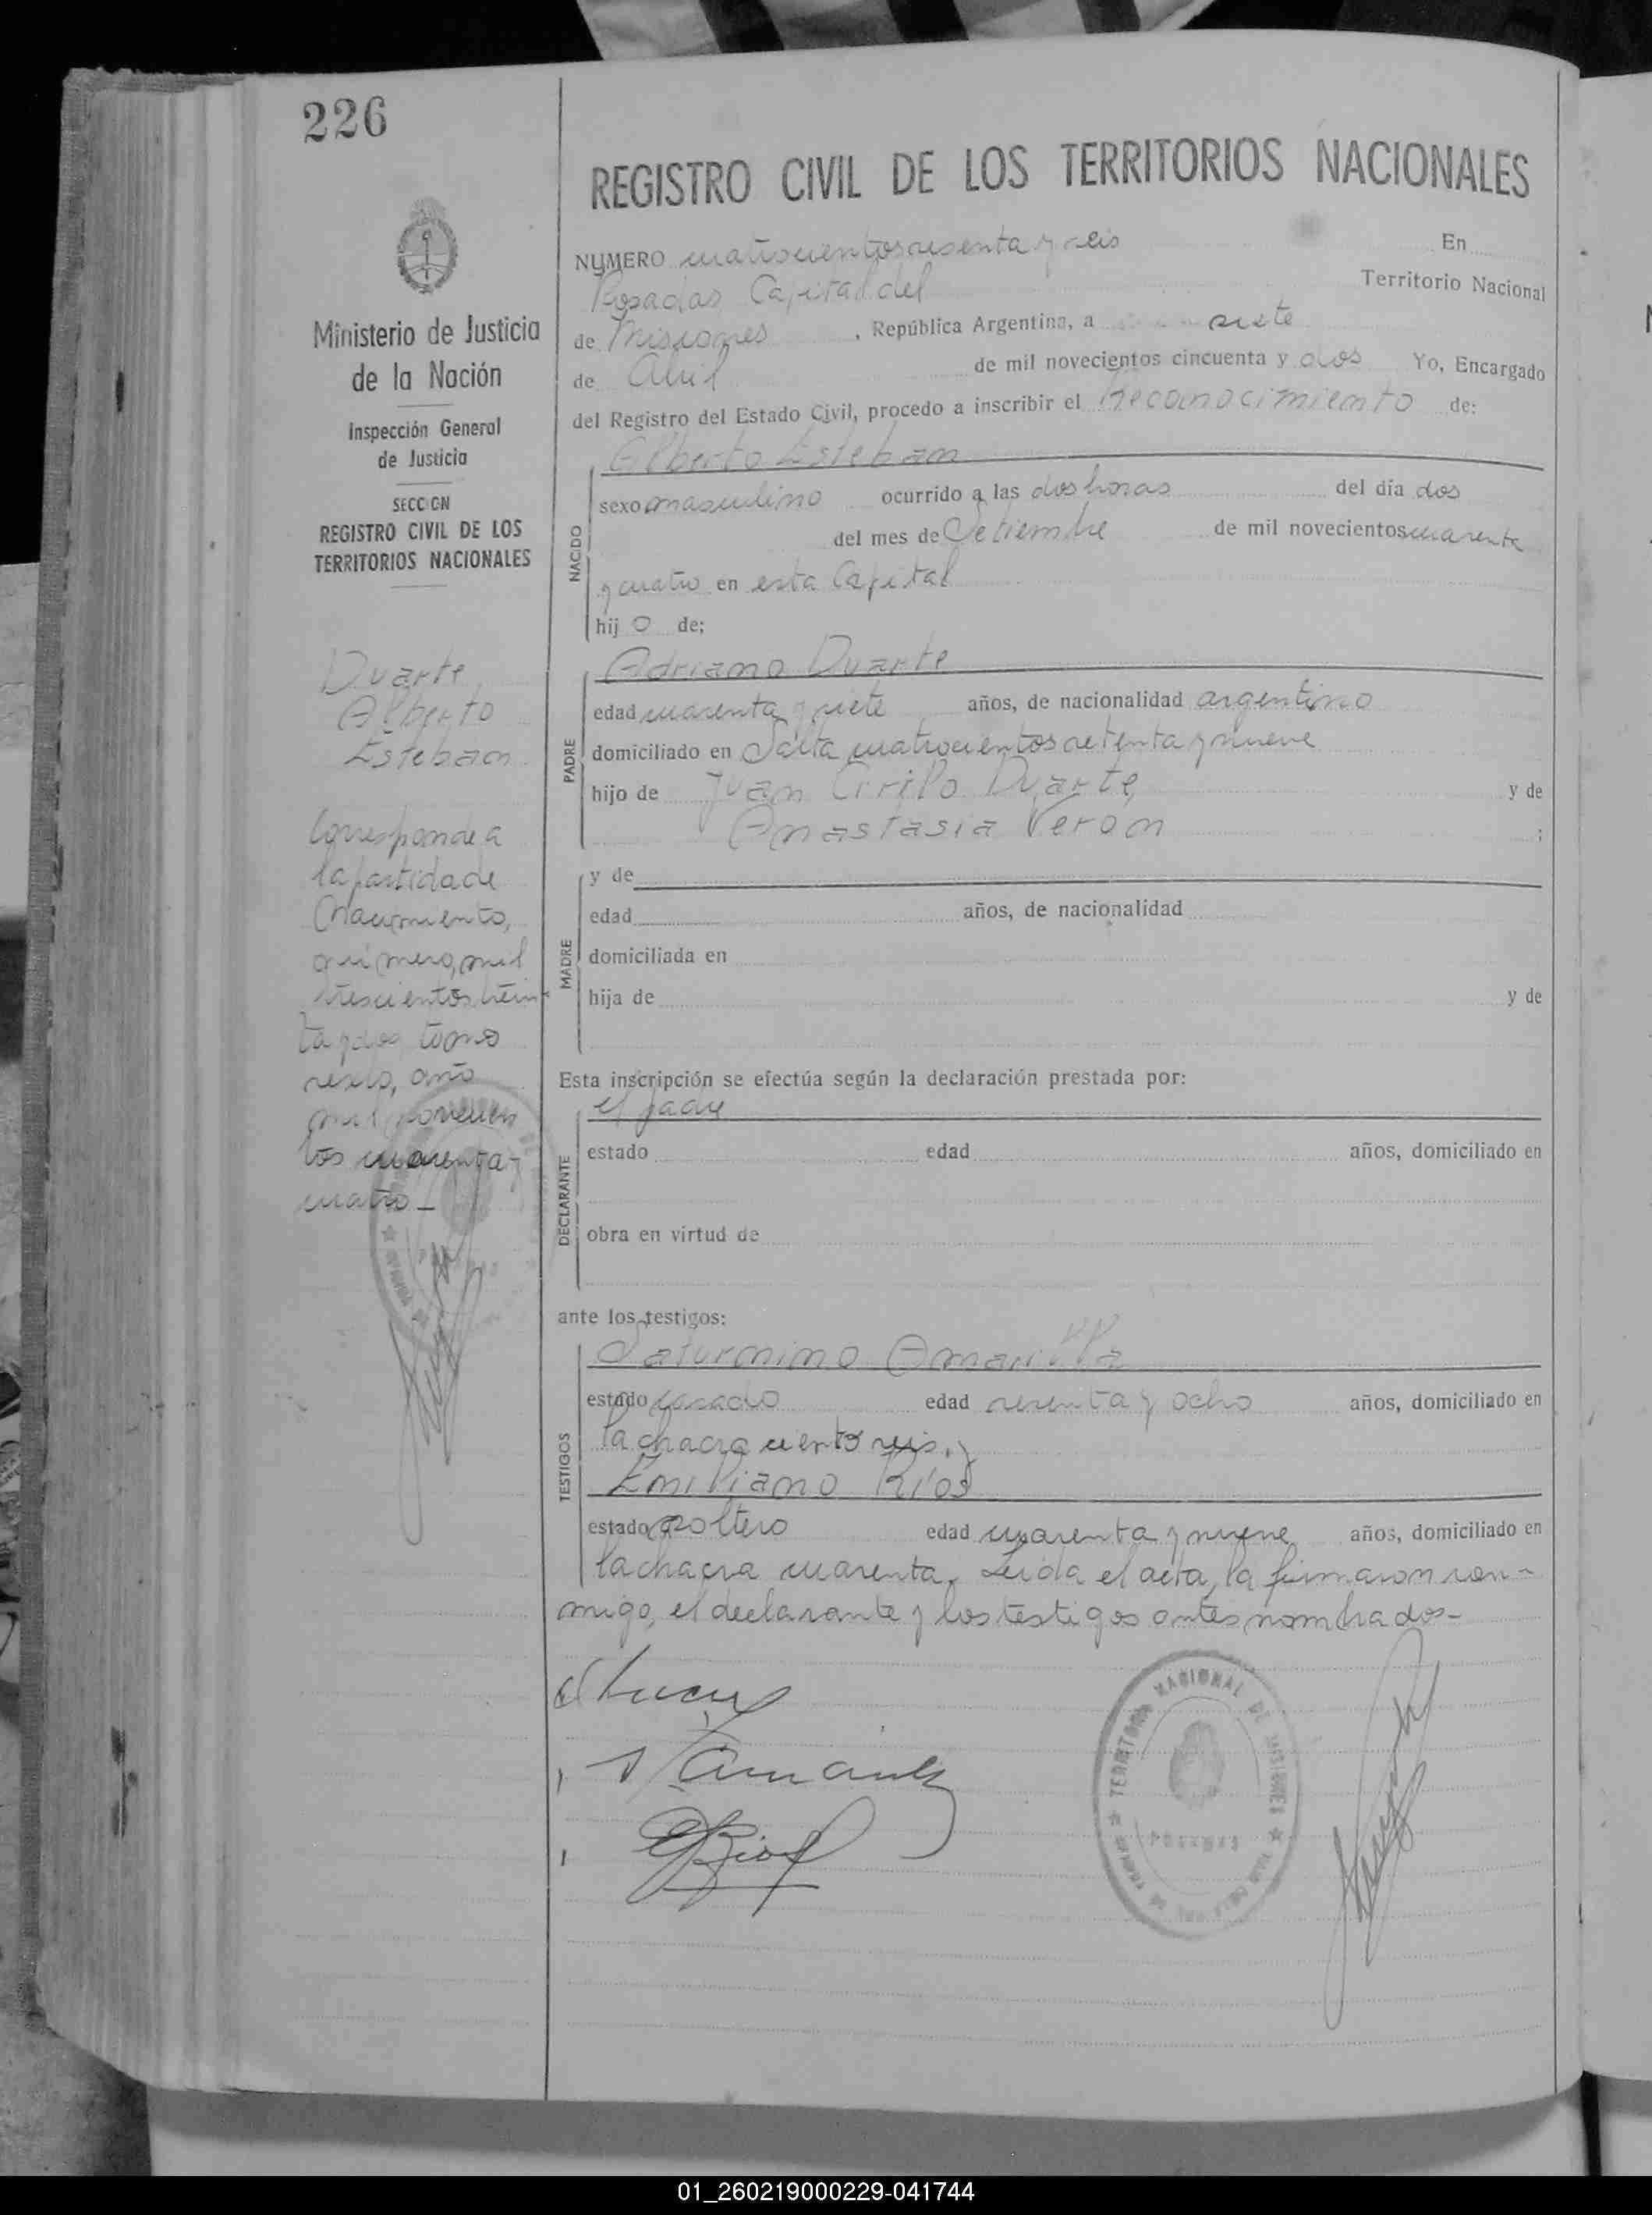 226
REGISTRO CIVIL DE LOS TERRITORIOS NACIONALES
NUMERO cuatrocientos sesenta y seis En
Posadas Capital del Territorio Nacional
de Misiones, República Argentina, a siete
de Abril de mil novecientos cincuenta y dos Yo, Encargado
del Registro del Estado Civil, procedo a inscribir el Reconocimiento de:
Ministerio de Justicia
de la Nación
Inspección General
de Justicia
SECCION
REGISTRO CIVIL DE LOS
TERRITORIOS NACIONALES
Duarte
Alberto
Esteban
Corresponde a
la partida de
Nacimiento,
número, mil
trescientos trein
ta y dos tomo
sexto, año
mil novecien
tos cuarenta y
cuatro_
NACIDO
Gilberto Esteban
sexo masculino ocurrido a las dos horas del día dos
del mes de Setiembre de mil novecientos cuarenta
y cuatro en esta Capital
hij o de;
PADRE
Adriano Duarte
edad cuarenta y siete años, de nacionalidad argentino
domiciliado en Salta cuatrocientos setenta y nueve
hijo de Juan Cirilo Duarte, y de
Anastasia Veron ;
MADRE
y de
edad años, de nacionalidad
domiciliada en
hija de y de
Esta inscripción se efectúa según la declaración prestada por:
DECLARANTE
el padre
estado edad años, domiciliado en
obra en virtud de
ante los testigos:
TESTIGOS
Saturnino Amarilla
estado casado edad sesenta y ocho años, domiciliado en
la chacra ciento seis, y
Emiliano Ríos
estado soltero edad cuarenta y nueve años, domiciliado en
la chacra cuarenta. Leída el acta, la firmaron con-
migo, el declarante y los testigos antes nombrados-
E Rios
TERRITORIO NACIONAL DE MISIONES
POSADAS
01_260219000229-041744